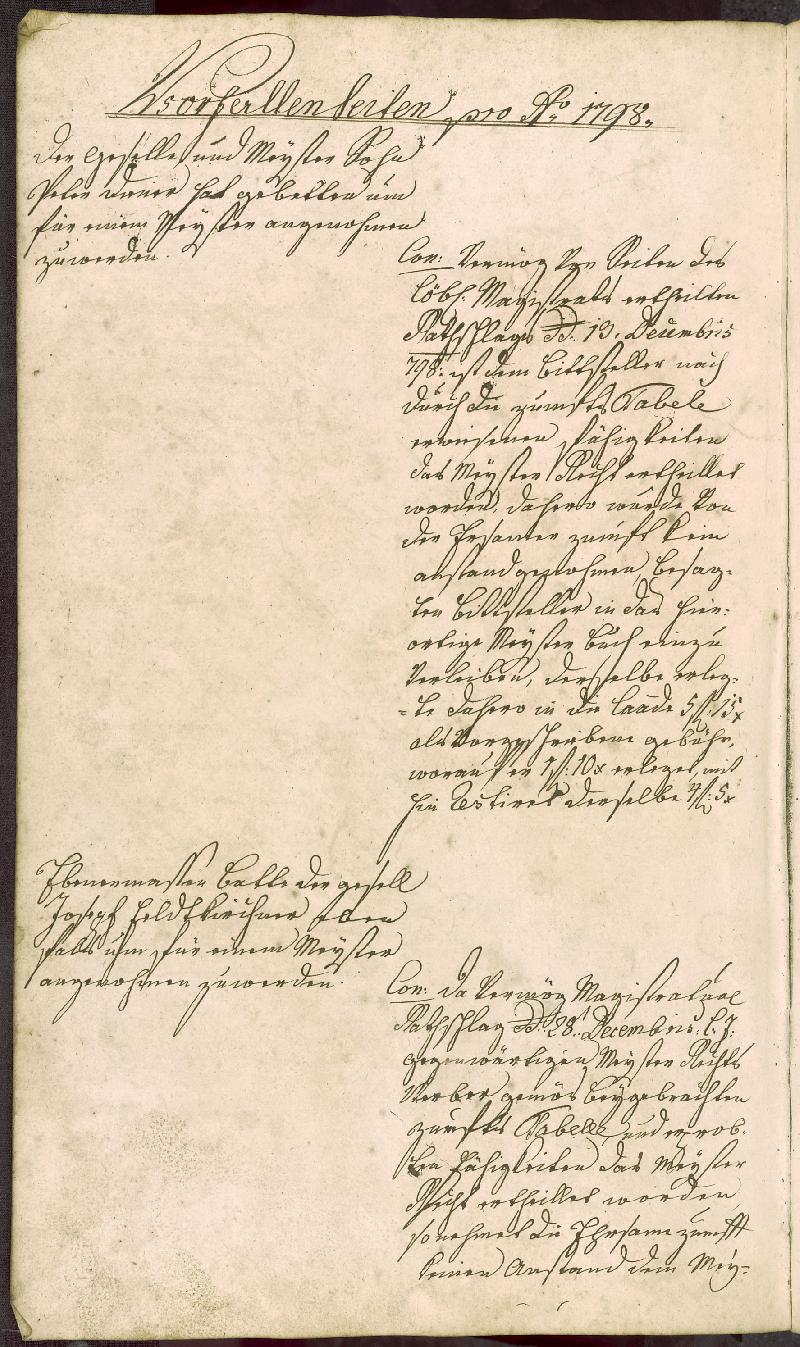 Vorfallenheiten pro Ao 1798.
Der Geselle und Meyster Sohn
Peter hat gebetten um
für einem Meyster angenohmen
zuwerden.
Con: Vermög von Seiten des
löbl. Magistrats ertheilten
Rathschlags dd. 13. Decembris
798: ist dem Bittsteller nach
durch die zunfts Tabele
erwiesenen fähigkeiten
das Meyster Recht ertheillet
worden, dahero wurde von
der Ersamen zunft kein
anstand genohmen, besag-
ten Bittsteller in das hier-
ortige Meyster Buch einzu
verleiben, derselbe erleg-
-te dahero in die Laade 5 f: 15 x
als vorgeschriebene gebühr,
worauf er 1 f: 10 x erleget, mit
hin restiret derselbe 4 f: 5 x
Ebenermassen batte der gesell
Joseph Feldtkirchner eben
falls um für einem Meyster
angenohmen zuwerden.
Con: Da vermög Magistratual
Rathschlag dd. 28t Decembris: l: J:
gegenwärtigen Meyster Rechts
Werber gemäs beygebrachten
zunfts Tabelle und erprob-
ten fähigkeiten das Meyster
Recht ertheillet worden
so nehmet die Ehrsame zunfft
keinen Anstand dem Mey-